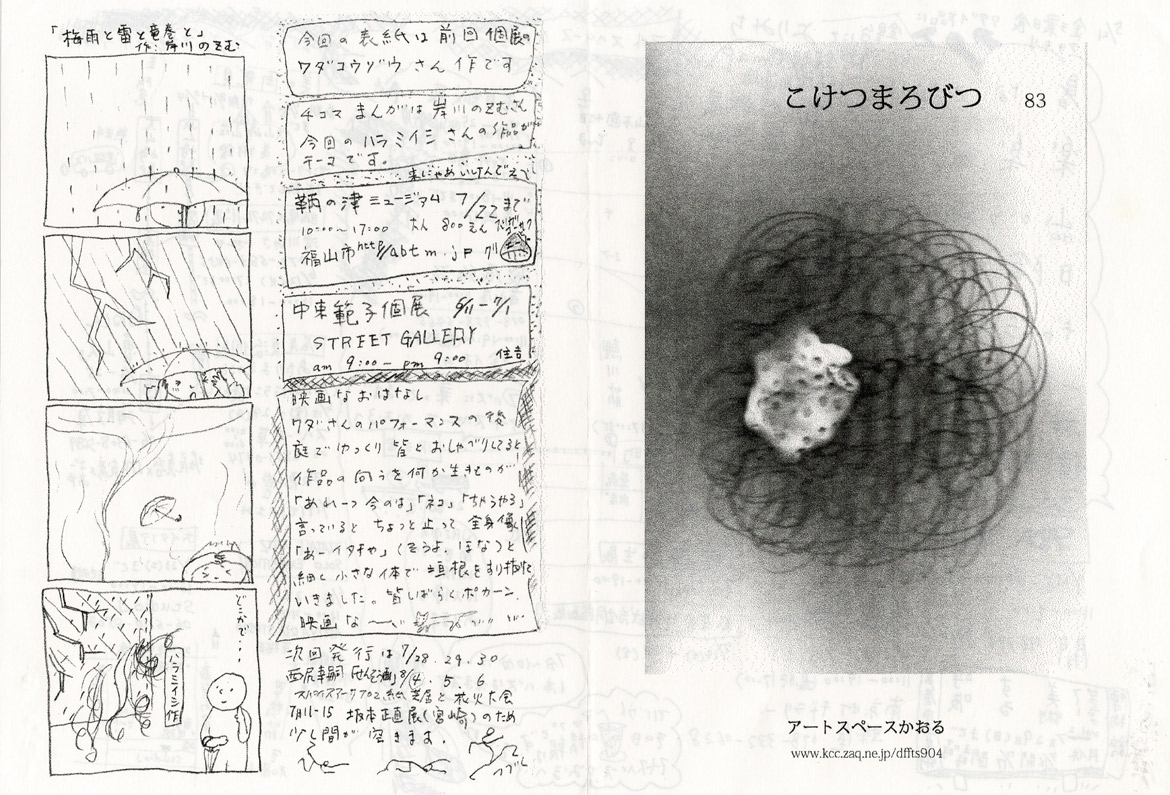 「梅雨と雷と竜巻と」
作：岸川のぞむ
どこかで・・・
ハラミイシ作
今回の表紙は前回個展の
ワダコウゾウさん作です
4コマまんがは岸川のぞむさん
今回のハラミイシさんの作品が
テーマです。
鞆の津ミュージアム 7/22まで
10:00〜17:00 大人 800えん
福山市 http://abtm.jp
中東範子個展 6/11-7/1
STREET GALLERY
am 9:00 - pm 9:00 住吉
映画なおはなし
ワダさんのパフォーマンスの後
庭でゆっくり皆とおしゃべりしてると
作品の向うを何か生きものが
「あれーっ今のは」「ネコ」「ちゃうやろ」
言っていると ちょっと止って 全身像
「あーイタチや」（そうよ、ほな）と
細く小さな体で 垣根をすり抜けて
いきました。皆しばらくポカーン。
映画な〜
次回発行は7/28.29.30
8/4.5.6
紙芝居と花火大会
7月11-15 坂本正直展(宮崎)のため
少し間が空きます。
つづく
こけつまろびつ 83
アートスペースかおる
www.kcc.zaq.ne.jp/dffts904